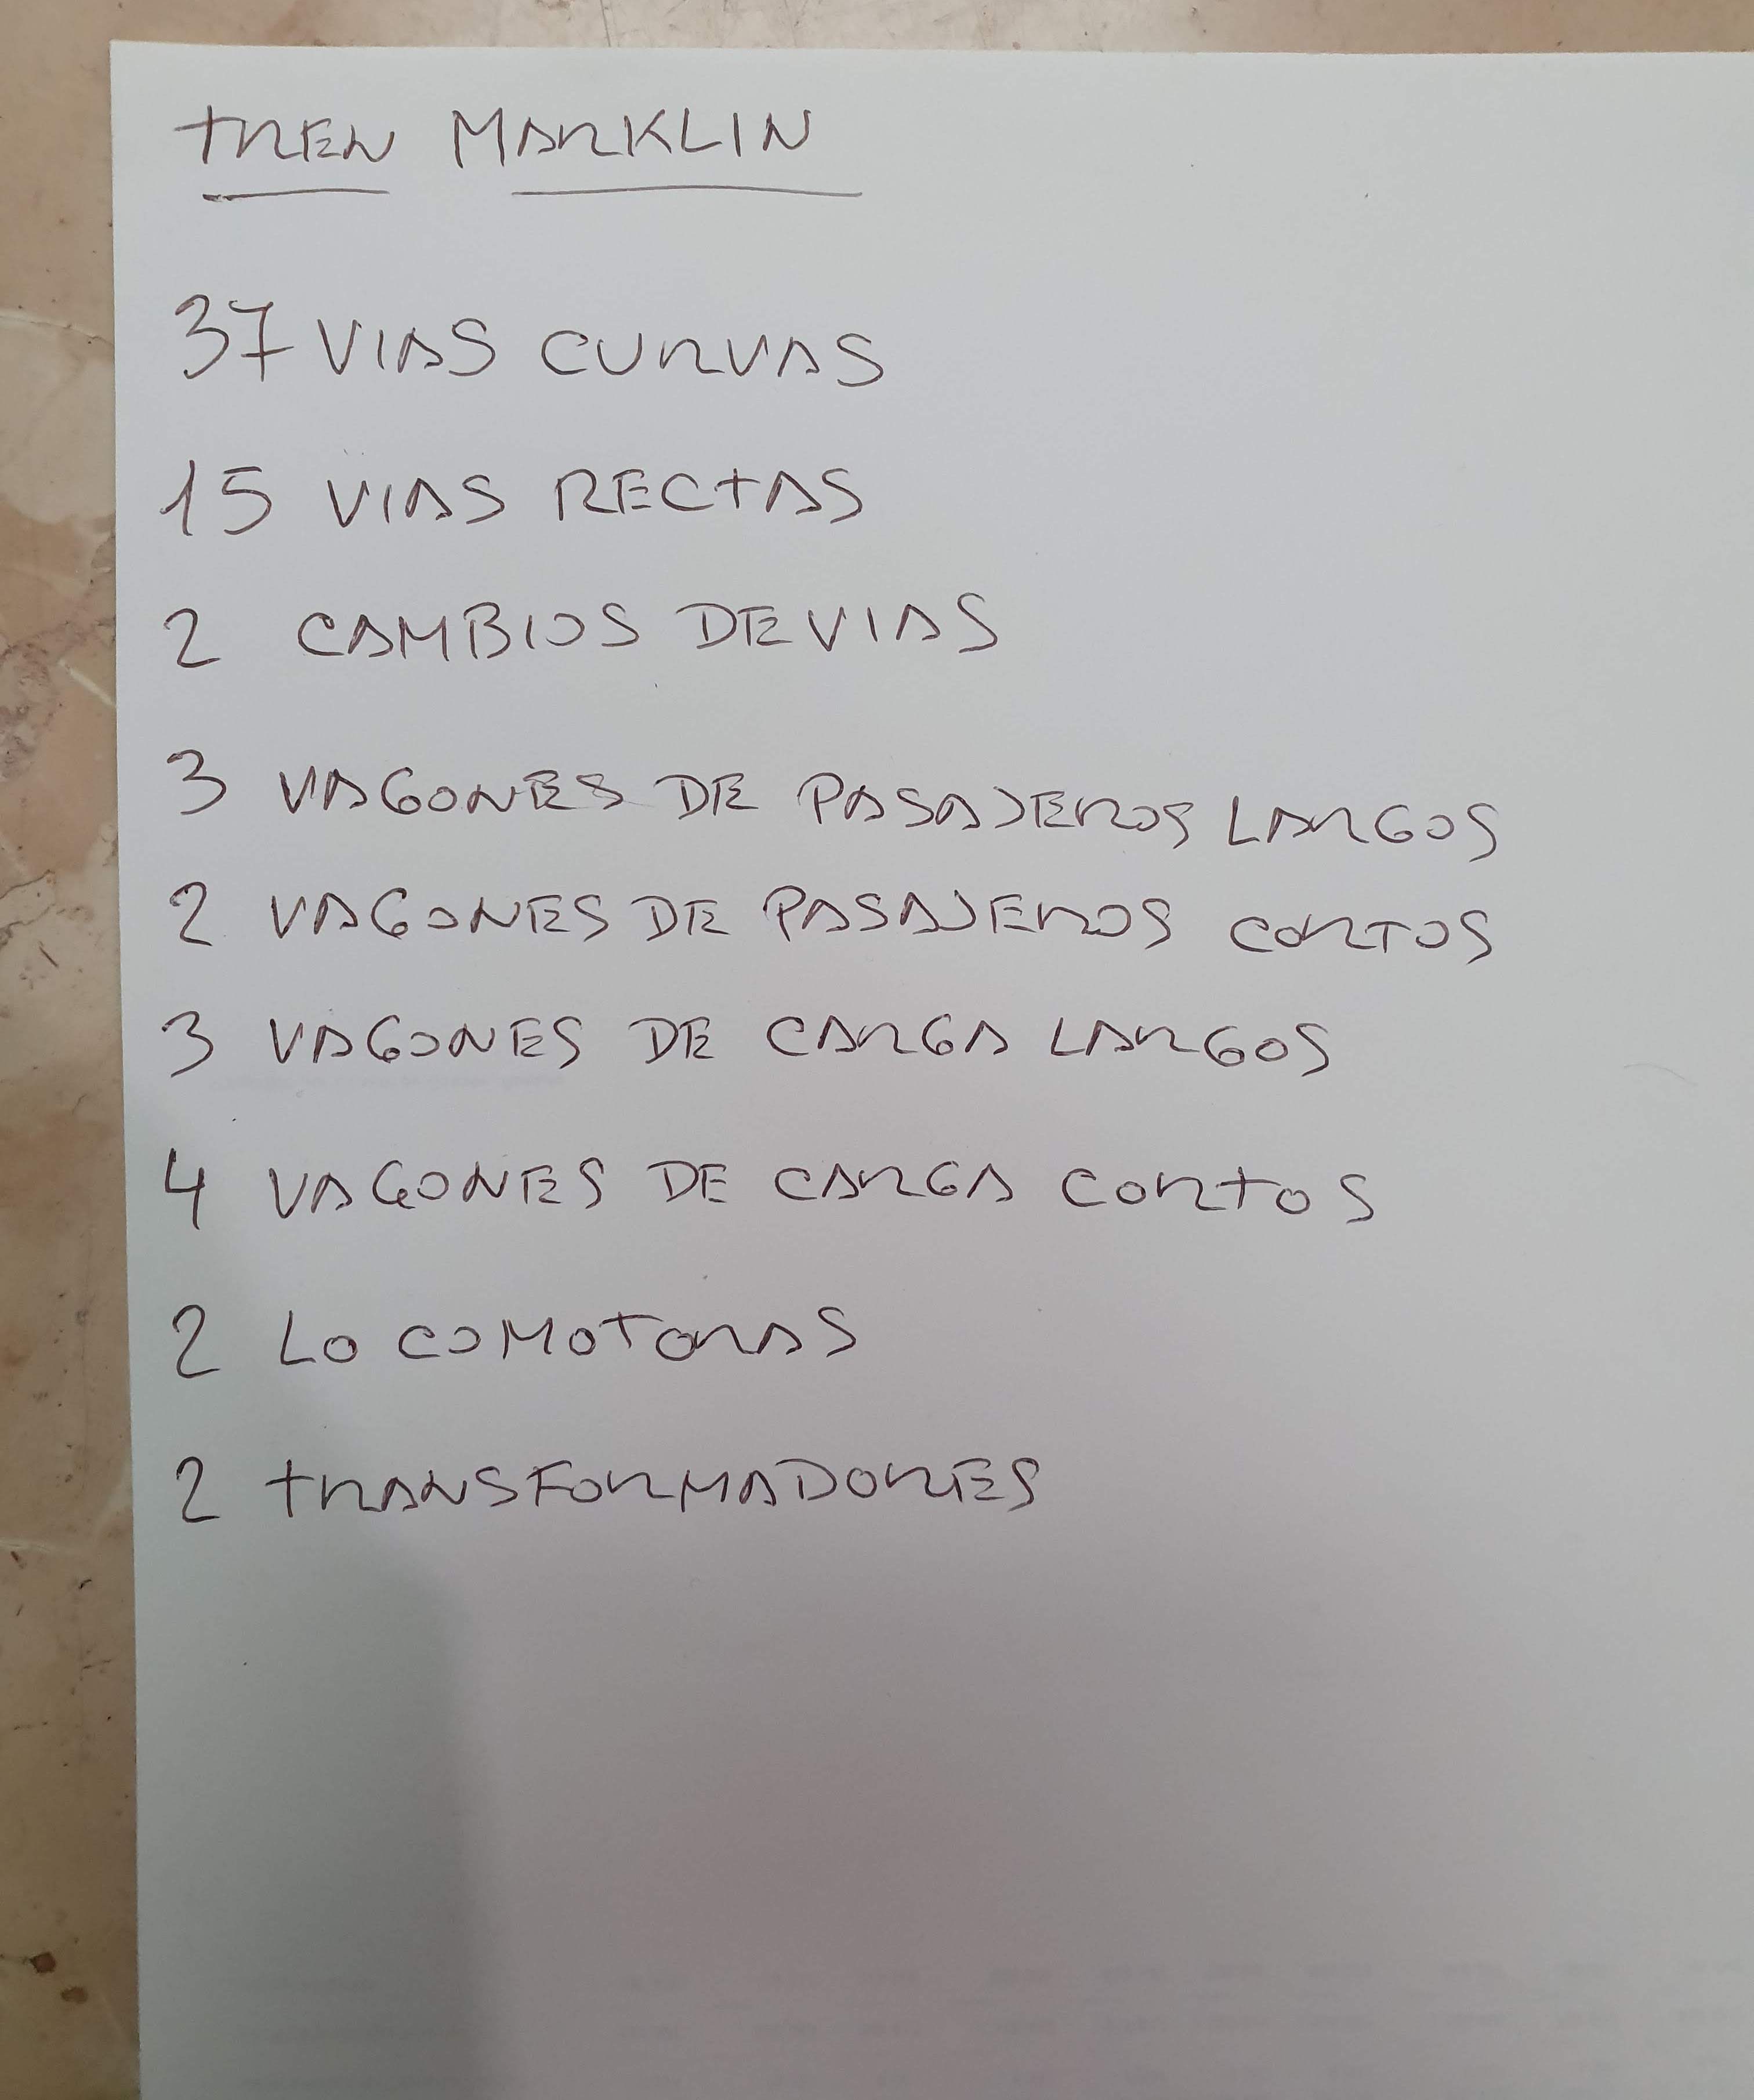 TREN MARKLIN
37 VIAS CURVAS
15 VIAS RECTAS
2 CAMBIOS DE VIAS
3 VAGONES DE PASAJEROS LARGOS
2 VAGONES DE PASAJEROS CORTOS
3 VAGONES DE CARGA LARGOS
4 VAGONES DE CARGA CORTOS
2 LOCOMOTORAS
2 TRANSFORMADORES